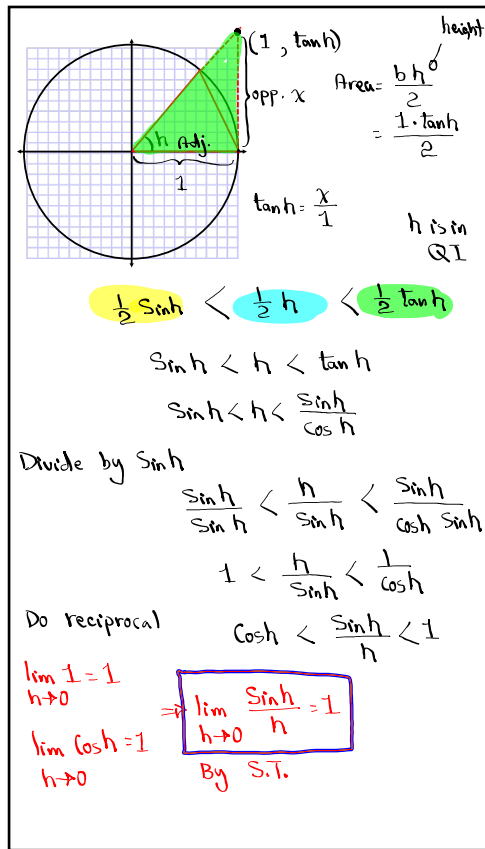 height
(1, tanh)
opp. x
Area = bh/2
= 1·tanh/2
h Adj.
1
tanh = x/1
h is in
QI
1/2 Sinh < 1/2 h < 1/2 tanh
Sinh < h < tanh
Sinh < h < Sinh/Cosh
Divide by Sinh
Sinh/Sinh < h/Sinh < Sinh/Cosh Sinh
1 < h/Sinh < 1/Cosh
Do reciprocal
Cosh < Sinh/h < 1
lim h→0 1 = 1
⇒ lim h→0 Sinh/h = 1
lim h→0 Cosh = 1
By S.T.